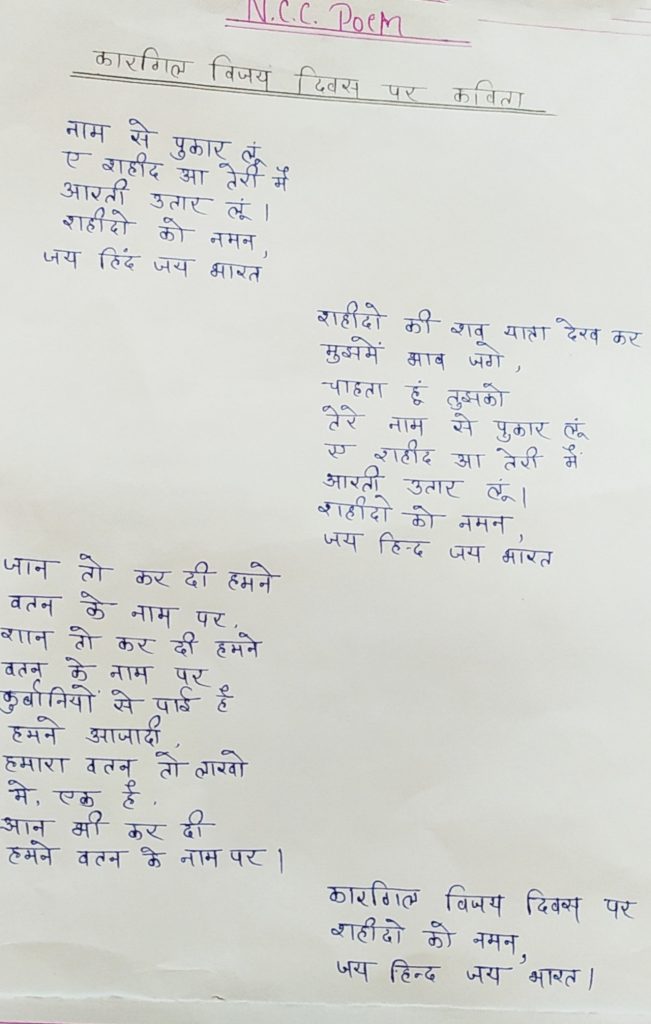 N.C.C. Poem
कारगिल विजय दिवस पर कविता
नाम से पुकार लूं
ए शहीद आ तेरी मैं
आरती उतार लूं।
शहीदो को नमन,
जय हिंद जय भारत
शहीदो की शव यात्रा देख कर
मुझमें भाव जगे,
चाहता हूं तुझको
तेरे नाम से पुकार लूं
ए शहीद आ तेरी मैं
आरती उतार लूं।
शहीदो को नमन,
जय हिन्द जय भारत
जान तो कर दी हमने
वतन के नाम पर,
शान तो कर दी हमने
वतन के नाम पर
कुर्बानियों से पाई है
हमने आजादी,
हमारा वतन तो लाखो
मे, एक है,
आन भी कर दी
हमने वतन के नाम पर।
कारगिल विजय दिवस पर
शहीदो को नमन,
जय हिन्द जय भारत।